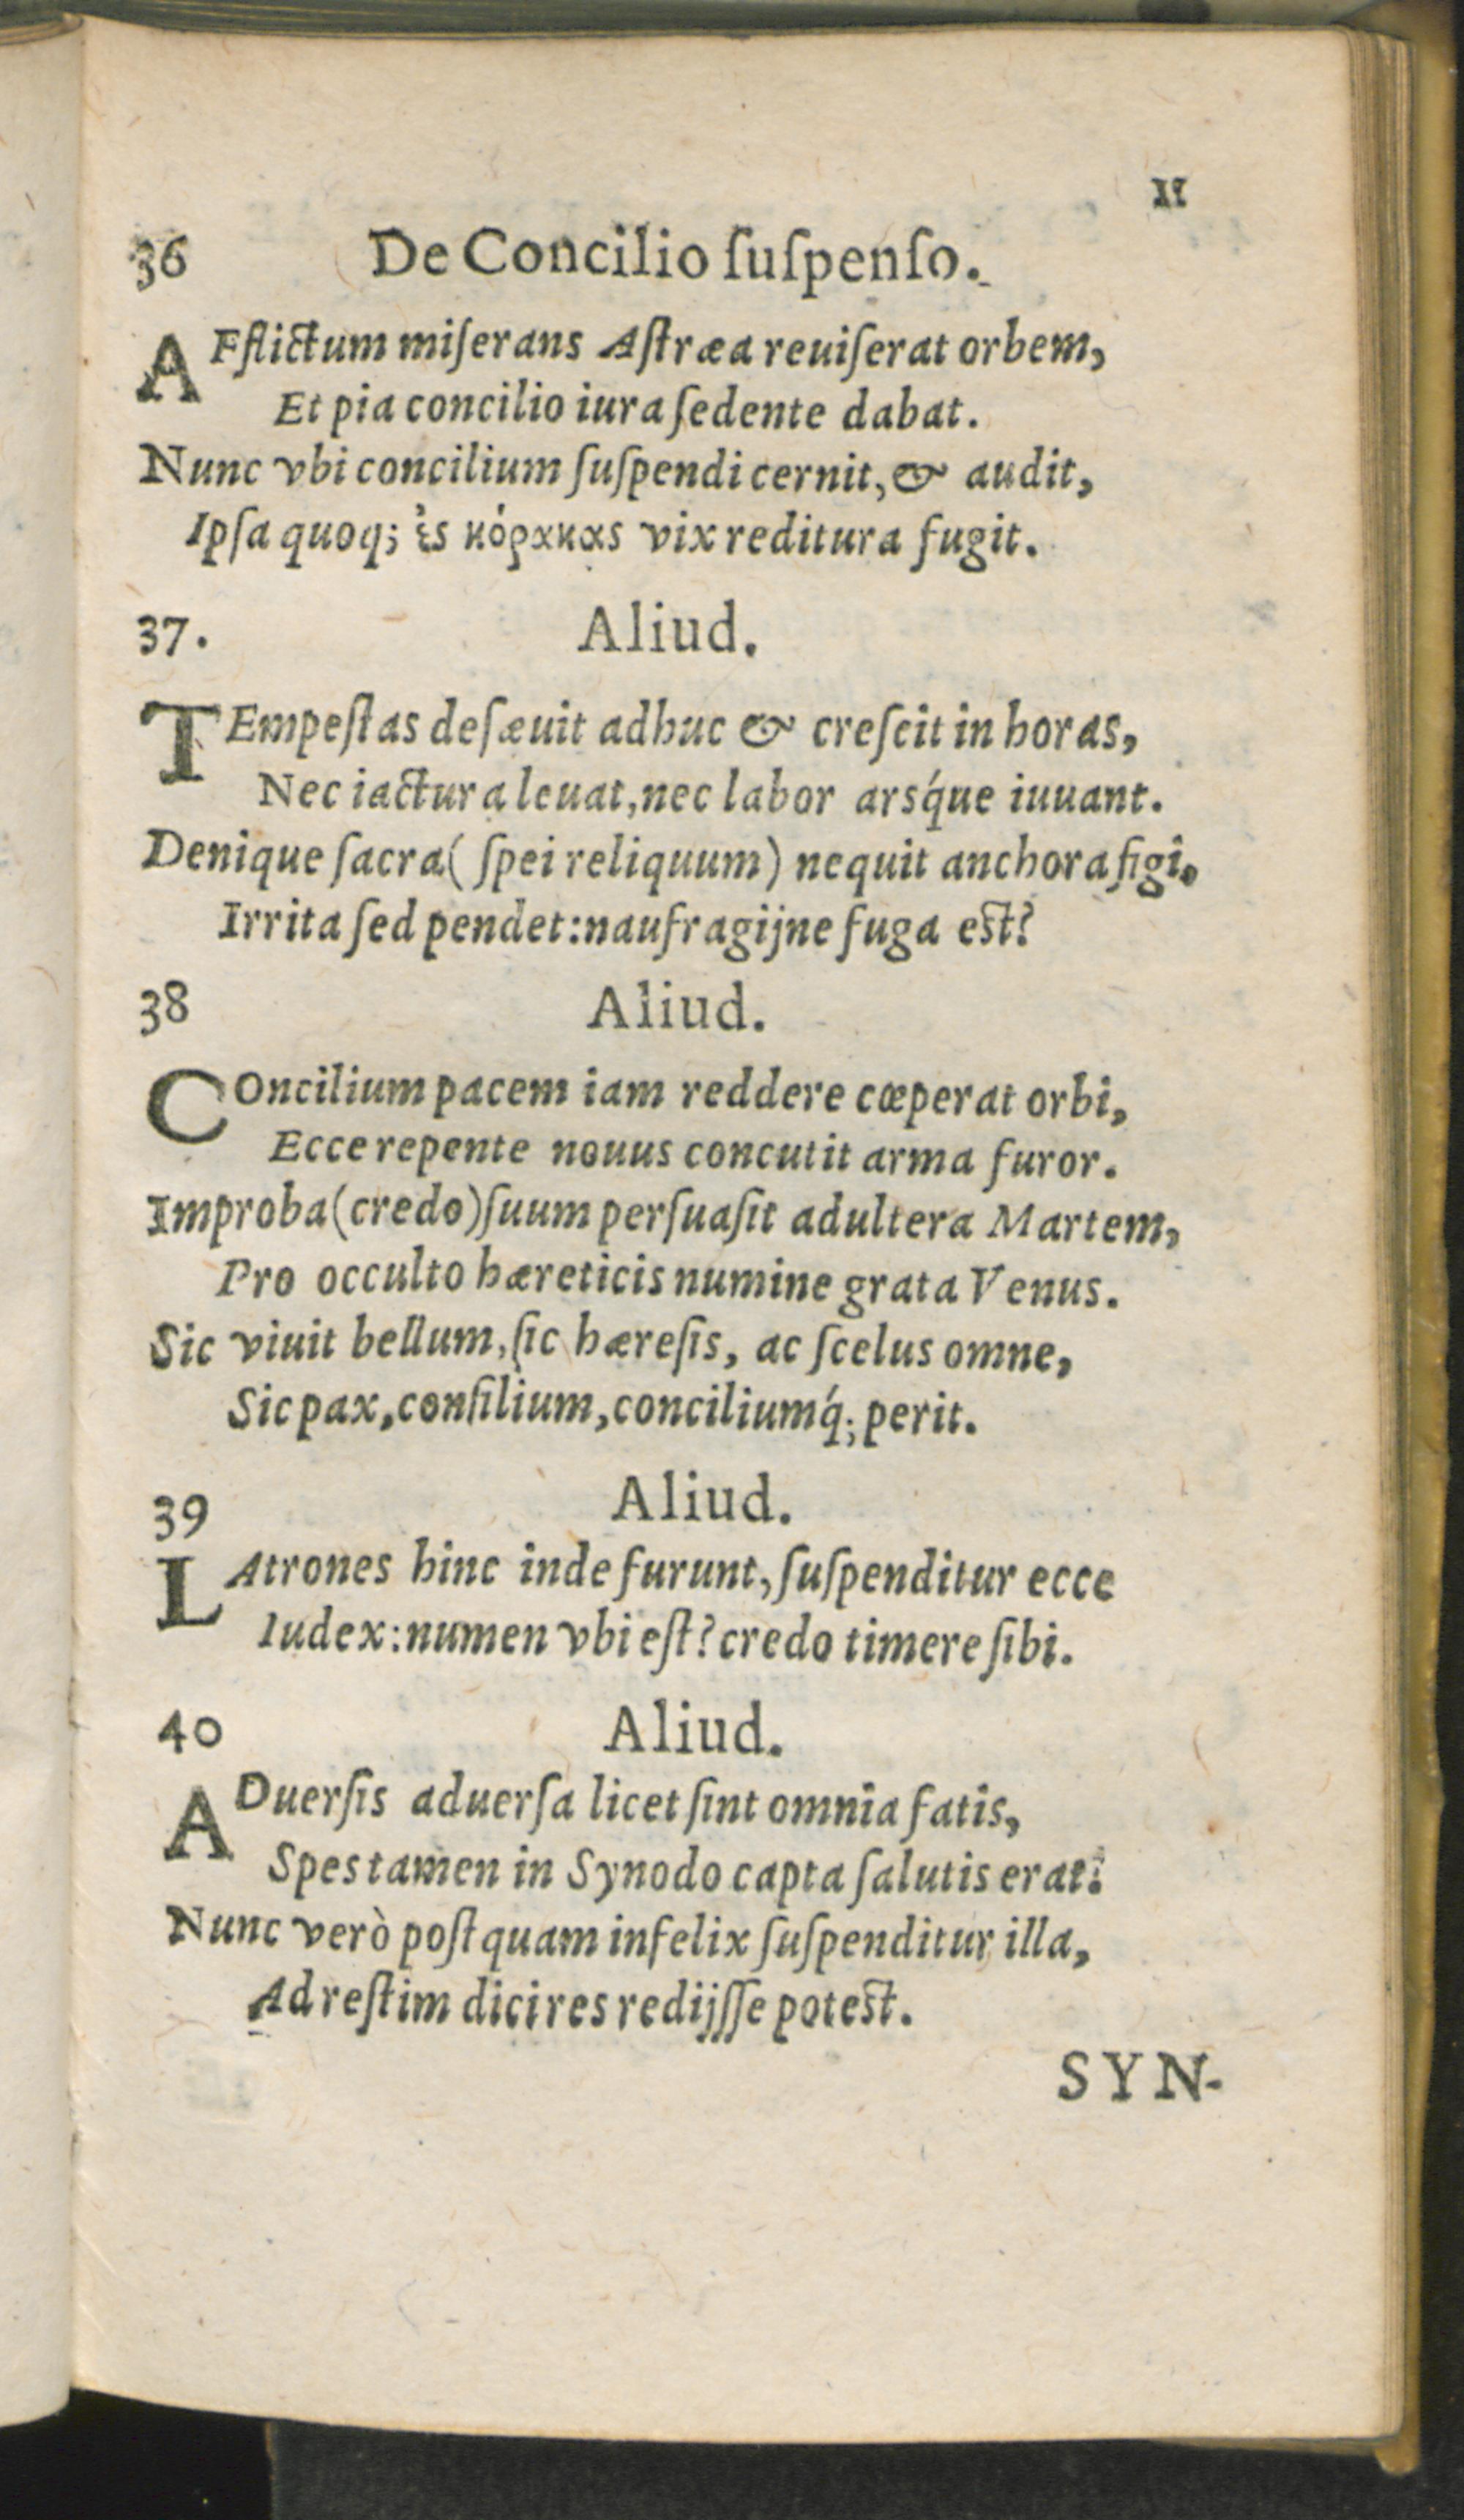 11
36 De Concilio ſuſpenſo.
AFflictum miſerans Aſtræa reuiſerat orbem,
Et pia concilio iura ſedente dabat.
Nunc vbi concilium ſuſpendi cernit, & audit,
Ipſa quoq; ἐς κόρακας vix reditura fugit.
37. Aliud.
TEmpeſtas deſæuit adhuc & creſcit in horas,
Nec iactura leuat, nec labor arsq́ue iuuant.
Denique ſacra (ſpei reliquum) nequit anchora figi,
Irrita ſed pendet: naufragijne fuga est?
38 Aliud.
COncilium pacem iam reddere cœperat orbi,
Ecce repente nouus concutit arma furor.
Improba (credo) ſuum perſuaſit adultera Martem,
Pro occulto hæreticis numine grata Venus.
Sic viuit bellum, ſic hæreſis, ac ſcelus omne,
Sic pax, conſilium, conciliumq́; perit.
39 Aliud.
LAtrones hinc inde furunt, ſuſpenditur ecce
Iudex: numen vbi eſt? credo timere ſibi.
40 Aliud.
ADuerſis aduerſa licet ſint omnia fatis,
Spes tamen in Synodo capta ſalutis erat:
Nunc verò poſtquam infelix ſuſpenditur illa,
Ad reſtim dici res redijſſe potest.
SYN-